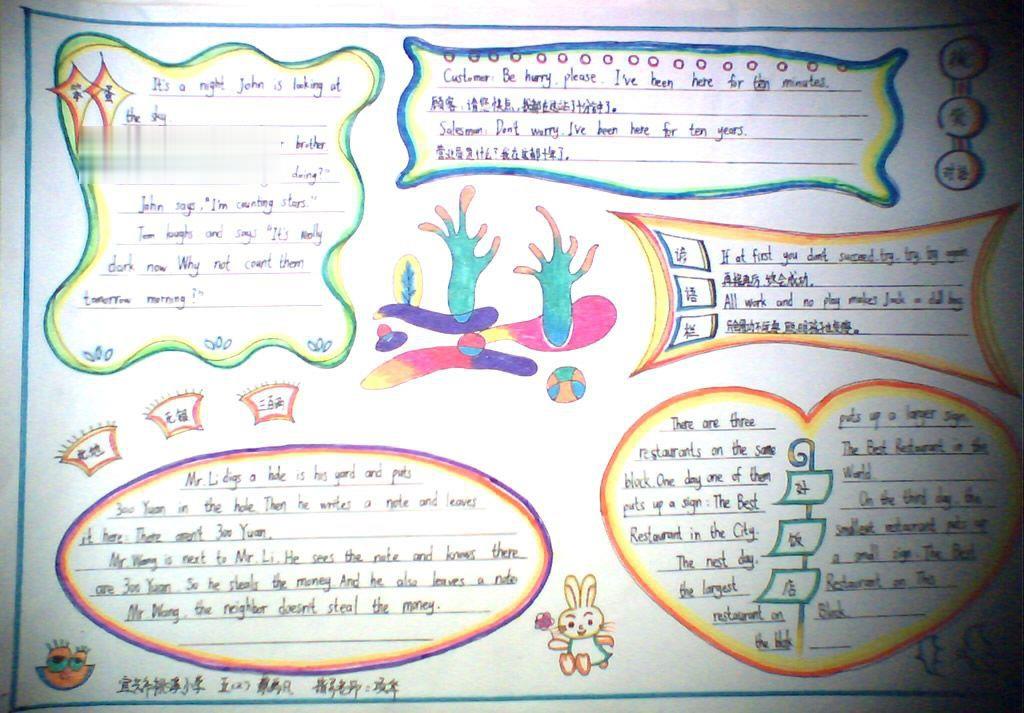 笨蛋
It's a night John is looking at
the sky.
brother
doing?"
John says, "I'm counting stars."
Tom laughs and says "It's really
dark now Why not count them
tomorrow morning?"
Customer: Be hurry, please. I've been here for ten minutes.
顾客:请您快点,我都在这站了十分钟了。
Salesman: Don't worry. I've been here for ten years.
营业员:我在这都十年了。
对话
谚语栏
If at first you don't succeed,try, try, try again.
再接再厉,终会成功。
All work and no play makes Jack a dull boy.
此地
无银
三百两
Mr. Li digs a hole is his yard and puts
300 Yuan in the hole. Then he writes a note and leaves
it here: There aren't 300 Yuan.
Mr. Wang is next to Mr. Li. He sees the note and knows there
are 300 Yuan. So he steals the money. And he also leaves a note
Mr Wang, the neighbor doesn't steal the money.
好饭店
There are three
restaurants on the same
block. One day one of them
puts up a sign: The Best
Restaurant in the City.
The nest day,
the largest
restaurant on
the block
puts up a larger sign.
The Best Restaurant in the
World.
On the third day, the
smallest restaurant puts up
a small sign: The Best
Restaurant on This
Block.
小学 五(2) 指导老师: